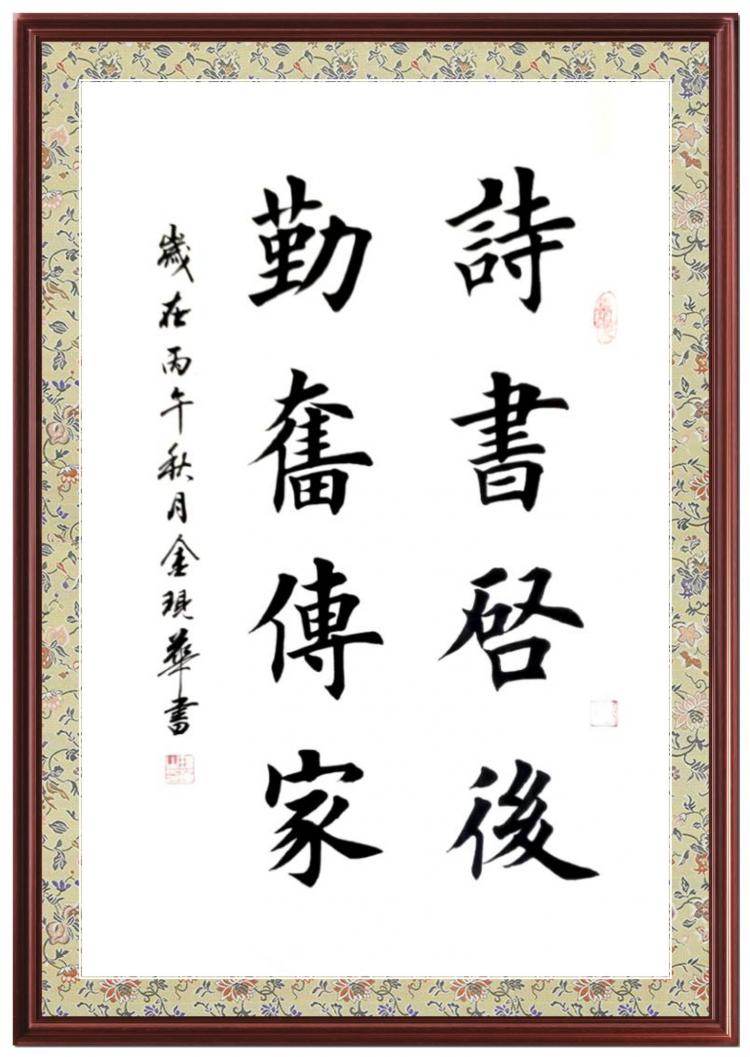 詩書啓後
勤奮傳家
歲在丙午秋月金現華書